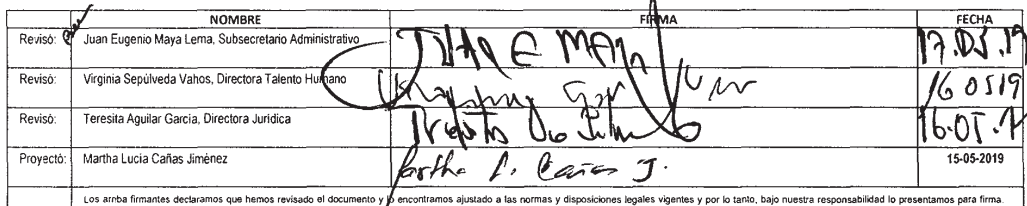 NOMBRE FIRMA FECHA
Revisó: Juan Eugenio Maya Lema, Subsecretario Administrativo JUAN E MAYA 17.05.19
Revisó: Virginia Sepúlveda Vahos, Directora Talento Humano 16 0519
Revisó: Teresita Aguilar Garcia, Directora Jurídica 16.05.
Proyectó: Martha Lucia Cañas Jiménez Martha L. Cañas J. 15-05-2019
Los arriba firmantes declaramos que hemos revisado el documento y lo encontramos ajustado a las normas y disposiciones legales vigentes y por lo tanto, bajo nuestra responsabilidad lo presentamos para firma.